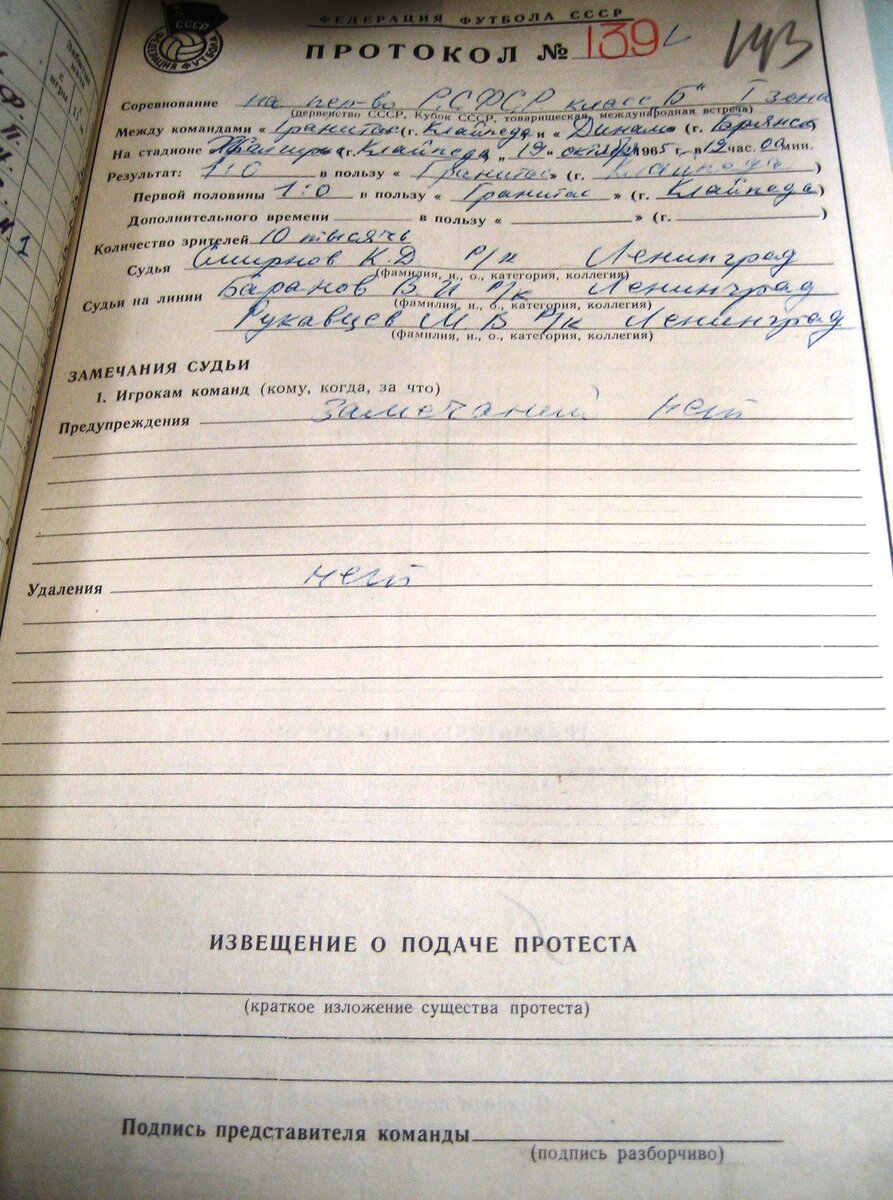 СССР
ФЕДЕРАЦИЯ ФУТБОЛА
ФЕДЕРАЦИЯ ФУТБОЛА СССР
ПРОТОКОЛ № 139
143
Соревнование на пер-во РСФСР класс „Б“ I зона
(первенство СССР, Кубок СССР, товарищеская, международная встреча)
Между командами « Гранитас (г. Клайпеда и « Динамо (г. Брянск)
На стадионе (г. Клайпеда „ 19 “ октября 1965 г. в 19 час. 00 мин.
Результат: 1:0 в пользу « Гранитас » (г. Клайпеда )
Первой половины 1:0 в пользу « Гранитас » (г. Клайпеда)
Дополнительного времени в пользу « » (г. )
Количество зрителей 10 тысяч
Судья Смирнов К.Д Р/к Ленинград
(фамилия, и., о., категория, коллегия)
Судьи на линии Баранов В. И Р/к Ленинград
(фамилия, и., о., категория, коллегия)
Рукавцев М. В Р/к Ленинград
(фамилия, и., о., категория, коллегия)
ЗАМЕЧАНИЯ СУДЬИ
1. Игрокам команд (кому, когда, за что)
Предупреждения замечаний нет
Удаления нет
ИЗВЕЩЕНИЕ О ПОДАЧЕ ПРОТЕСТА
(краткое изложение существа протеста)
Подпись представителя команды
(подпись разборчиво)